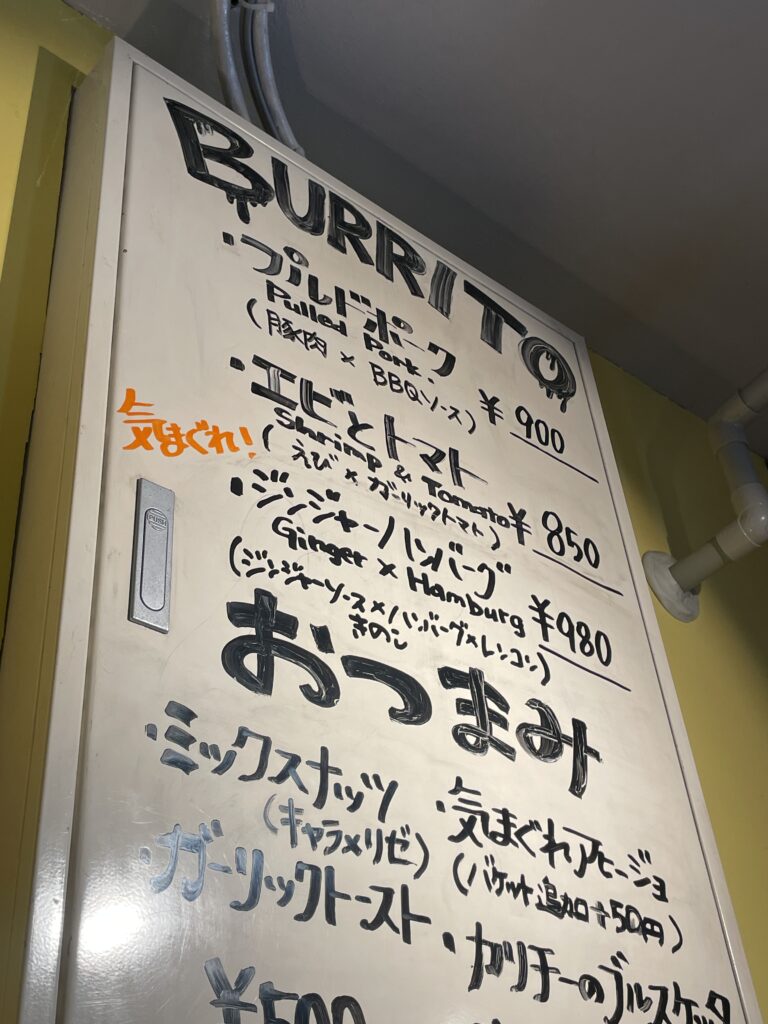 BURRITO
・プルドポーク
Pulled Pork.
(豚肉 × BBQソース) ¥900
気まぐれ!
・エビとトマト
Shrimp & Tomato
(えび × ガーリックトマト) ¥850
・ジンジャーハンバーグ
Ginger × Hamburg
(ジンジャーソース×ハンバーグ×レンコン ¥980
きのこ)
おつまみ
・ミックスナッツ
(キャラメリゼ)
・気まぐれアヒージョ
(バケット追加+50円)
・ガーリックトースト
・ガリチーのブルスケッタ
¥500
PUSH